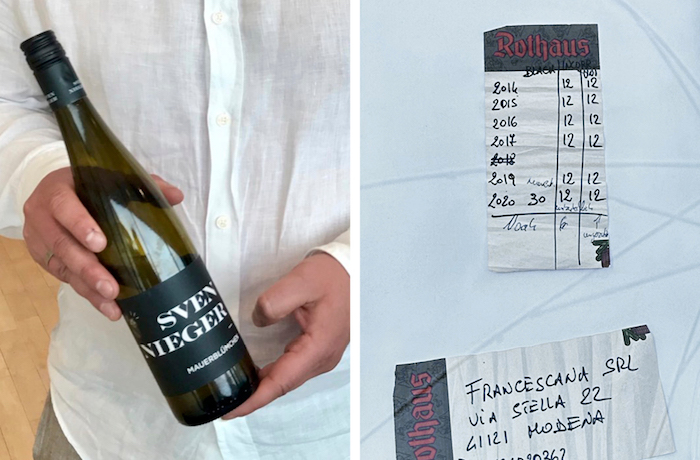 SVEN
NIEGER
MAUERBLÜMCHEN
Rothaus
BLACK
2014 12 12
2015 12 12
2016 12 12
2017 12 12
2018
2019 12 12
2020 30 12 12
Rothaus
FRANCESCANA SRL
VIA STELLA 22
41121 MODENA